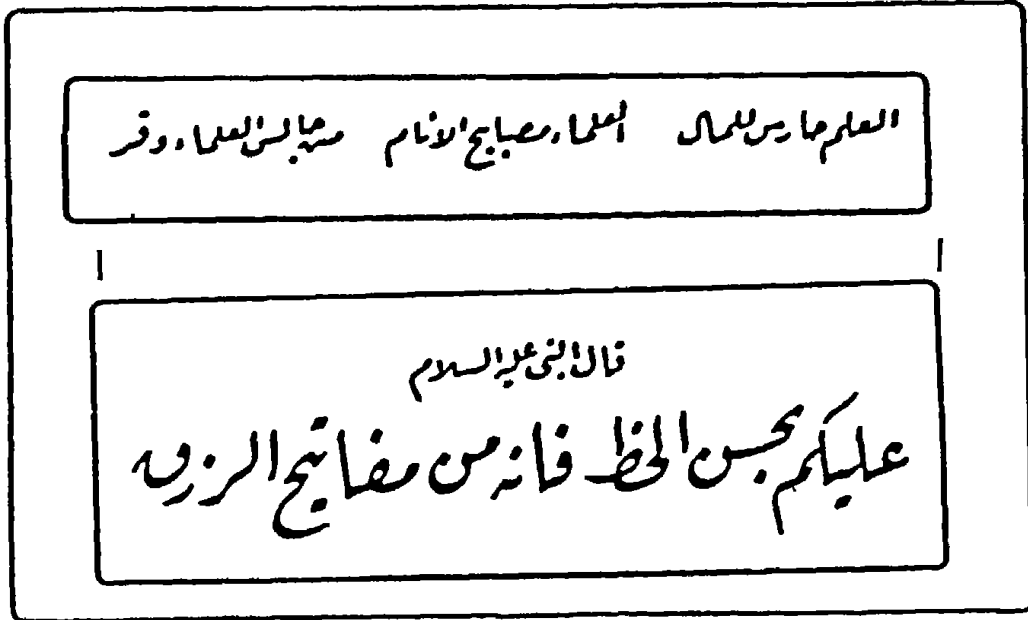 العلم حارس للمال العلماء مصابيح الانام من جالس العلماء وقر
قال النبى عليه السلام
عليكم بحسن الخط فانه من مفاتيح الرزق